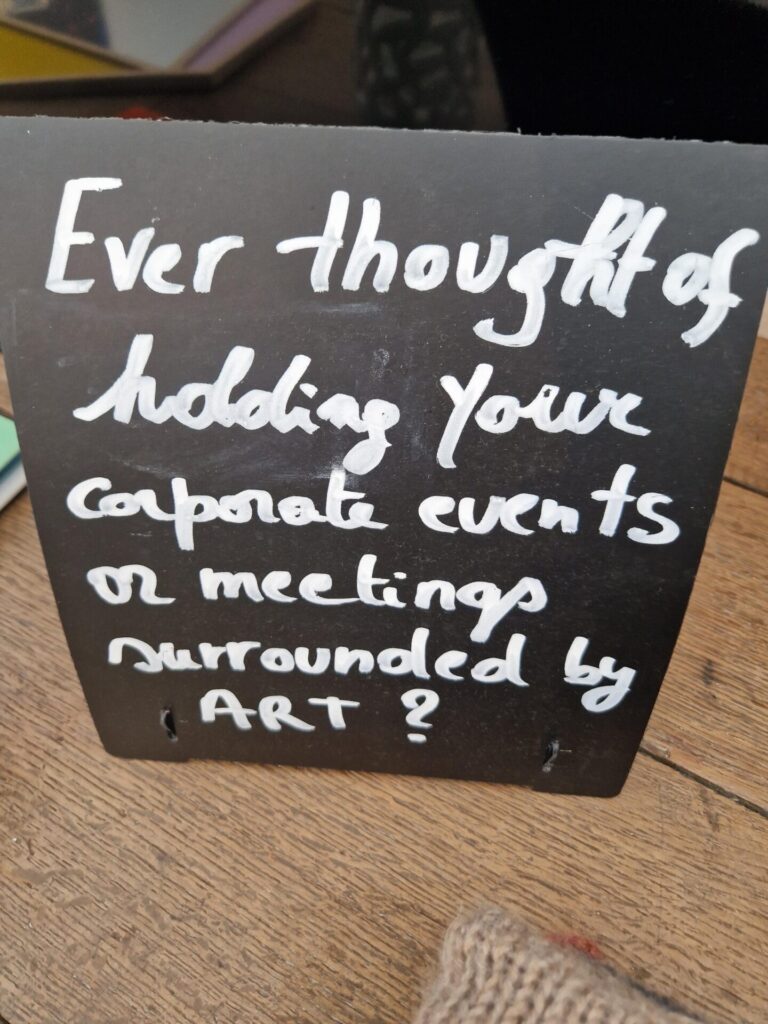 Ever thought of
holding your
corporate events
or meetings
surrounded by
ART ?